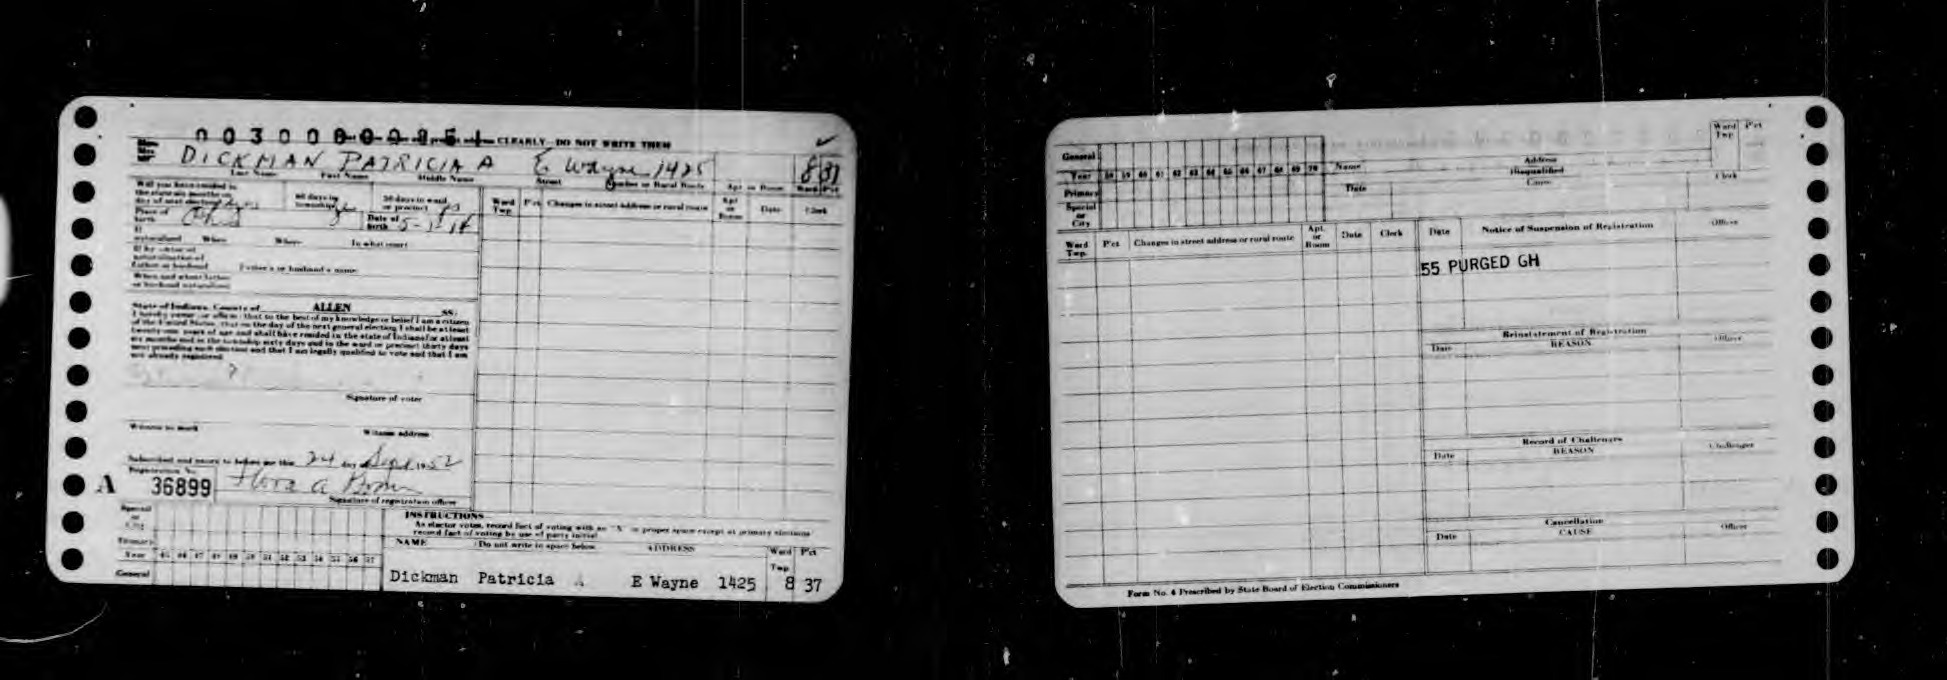 0030080085
CLEARLY—DO NOT WRITE THEM
DICKMAN PATRICIA A E Wayne 1425 8 37
Last Name First Name Middle Name Street Number or Rural Route Apt or Room Ward Pct
Will you have resided in
the state six months on
day of next election? yes
60 days in
township?
30 days in ward
or precinct
Place of
birth
Date of
birth
If
naturalized When Where In what court
If by virtue of
naturalization of
father or husband Father's or husband's name
When and where father
or husband naturalized
Ward
Twp. Pct. Changes in street address or rural route Apt.
or
Room Date Clerk
State of Indiana, County of ALLEN SS:
I hereby swear (or affirm) that to the best of my knowledge or belief I am a citizen
of the United States, that on the day of the next general election I shall be at least
twenty-one years of age and shall have resided in the state of Indiana for at least
six months and in the township sixty days and in the ward or precinct thirty days
next preceding such election and that I am legally qualified to vote and that I am
not already registered
Signature of voter
Witness to mark Witness address
Subscribed and sworn to before me this 24 day of Sept 1952
Registration No.
A 36899 Flora A
Signature of registration officer
Special
or
City
Primary
Year 45 46 47 48 49 50 51 52 53 54 55 56 57
General
INSTRUCTIONS
As elector votes, record fact of voting with an "X" in proper space except at primary elections
record fact of voting by use of party initial
NAME (Do not write in space below) ADDRESS Ward
Twp. Pct
Dickman Patricia A E Wayne 1425 8 37
General
Year 58 59 60 61 62 63 64 65 66 67 68 69 70
Primary
Special
or
City
Name Address Ward
Twp. Pct
Disqualified
Date Cause Clerk
Ward
Twp. Pct. Changes in street address or rural route Apt.
or
Room Date Clerk
Date Notice of Suspension of Registration Officer
55 PURGED GH
Reinstatement of Registration
Date REASON Officer
Record of Challenges
Date REASON Challenger
Cancellation
Date CAUSE Officer
Form No. 6 Prescribed by State Board of Election Commissioners